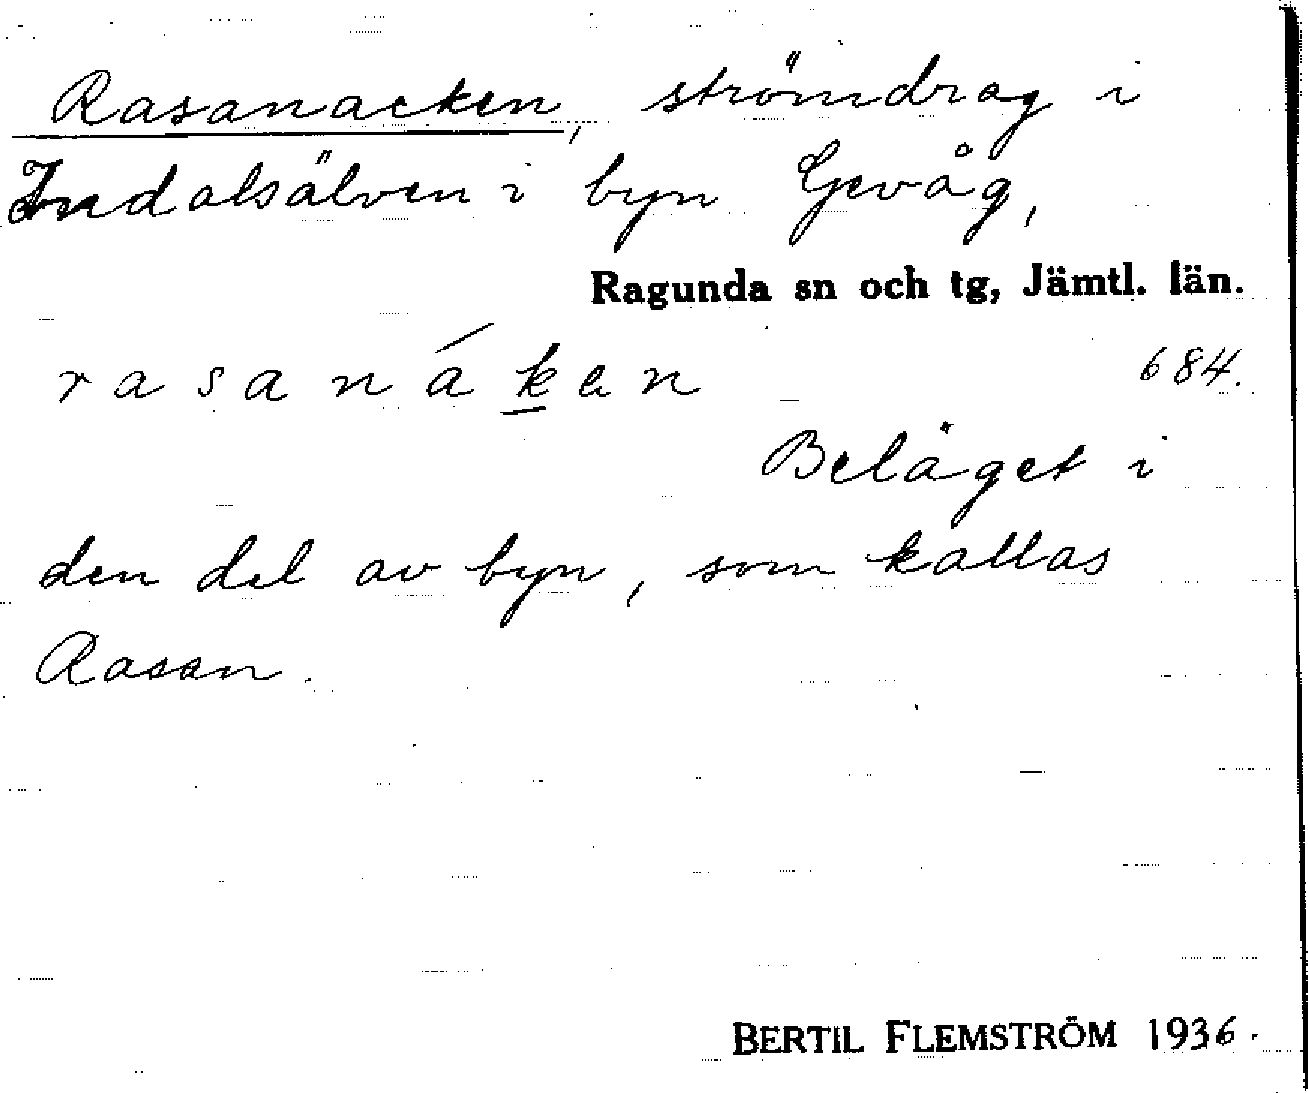 Rasanacken, strömdrag i
Indalsälven i byn Gevåg,
Ragunda sn och tg, Jämtl. län.
r a s a n á k e n 684.
Beläget i
den del av byn, som kallas
Rasan.
BERTIL FLEMSTRÖM 1936.